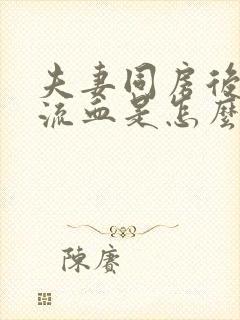 夫妻同房後
流血是怎麼
陳賡